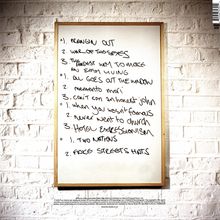 •1. PRANGIN OUT
2 WAR OF THE SEXES
3. THE HARDEST WAY TO MAKE
AN EASY LIVING
•1. ALL GOES OUT THE WINDOW
2 memento mori
3. can't con an honest john
•1 when you wasn't famous
2 never went to church
3. HOTEL EXPRESSIONISM
•1. TWO NATIONS
2 FAKE STREETS HATS